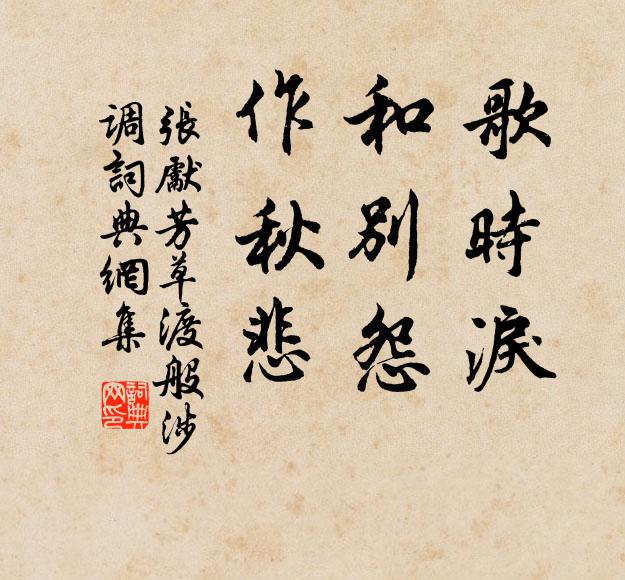 歌時淚
和別怨
作秋悲
張鷰芳草渡般涉
调詞典網集
詞典網印